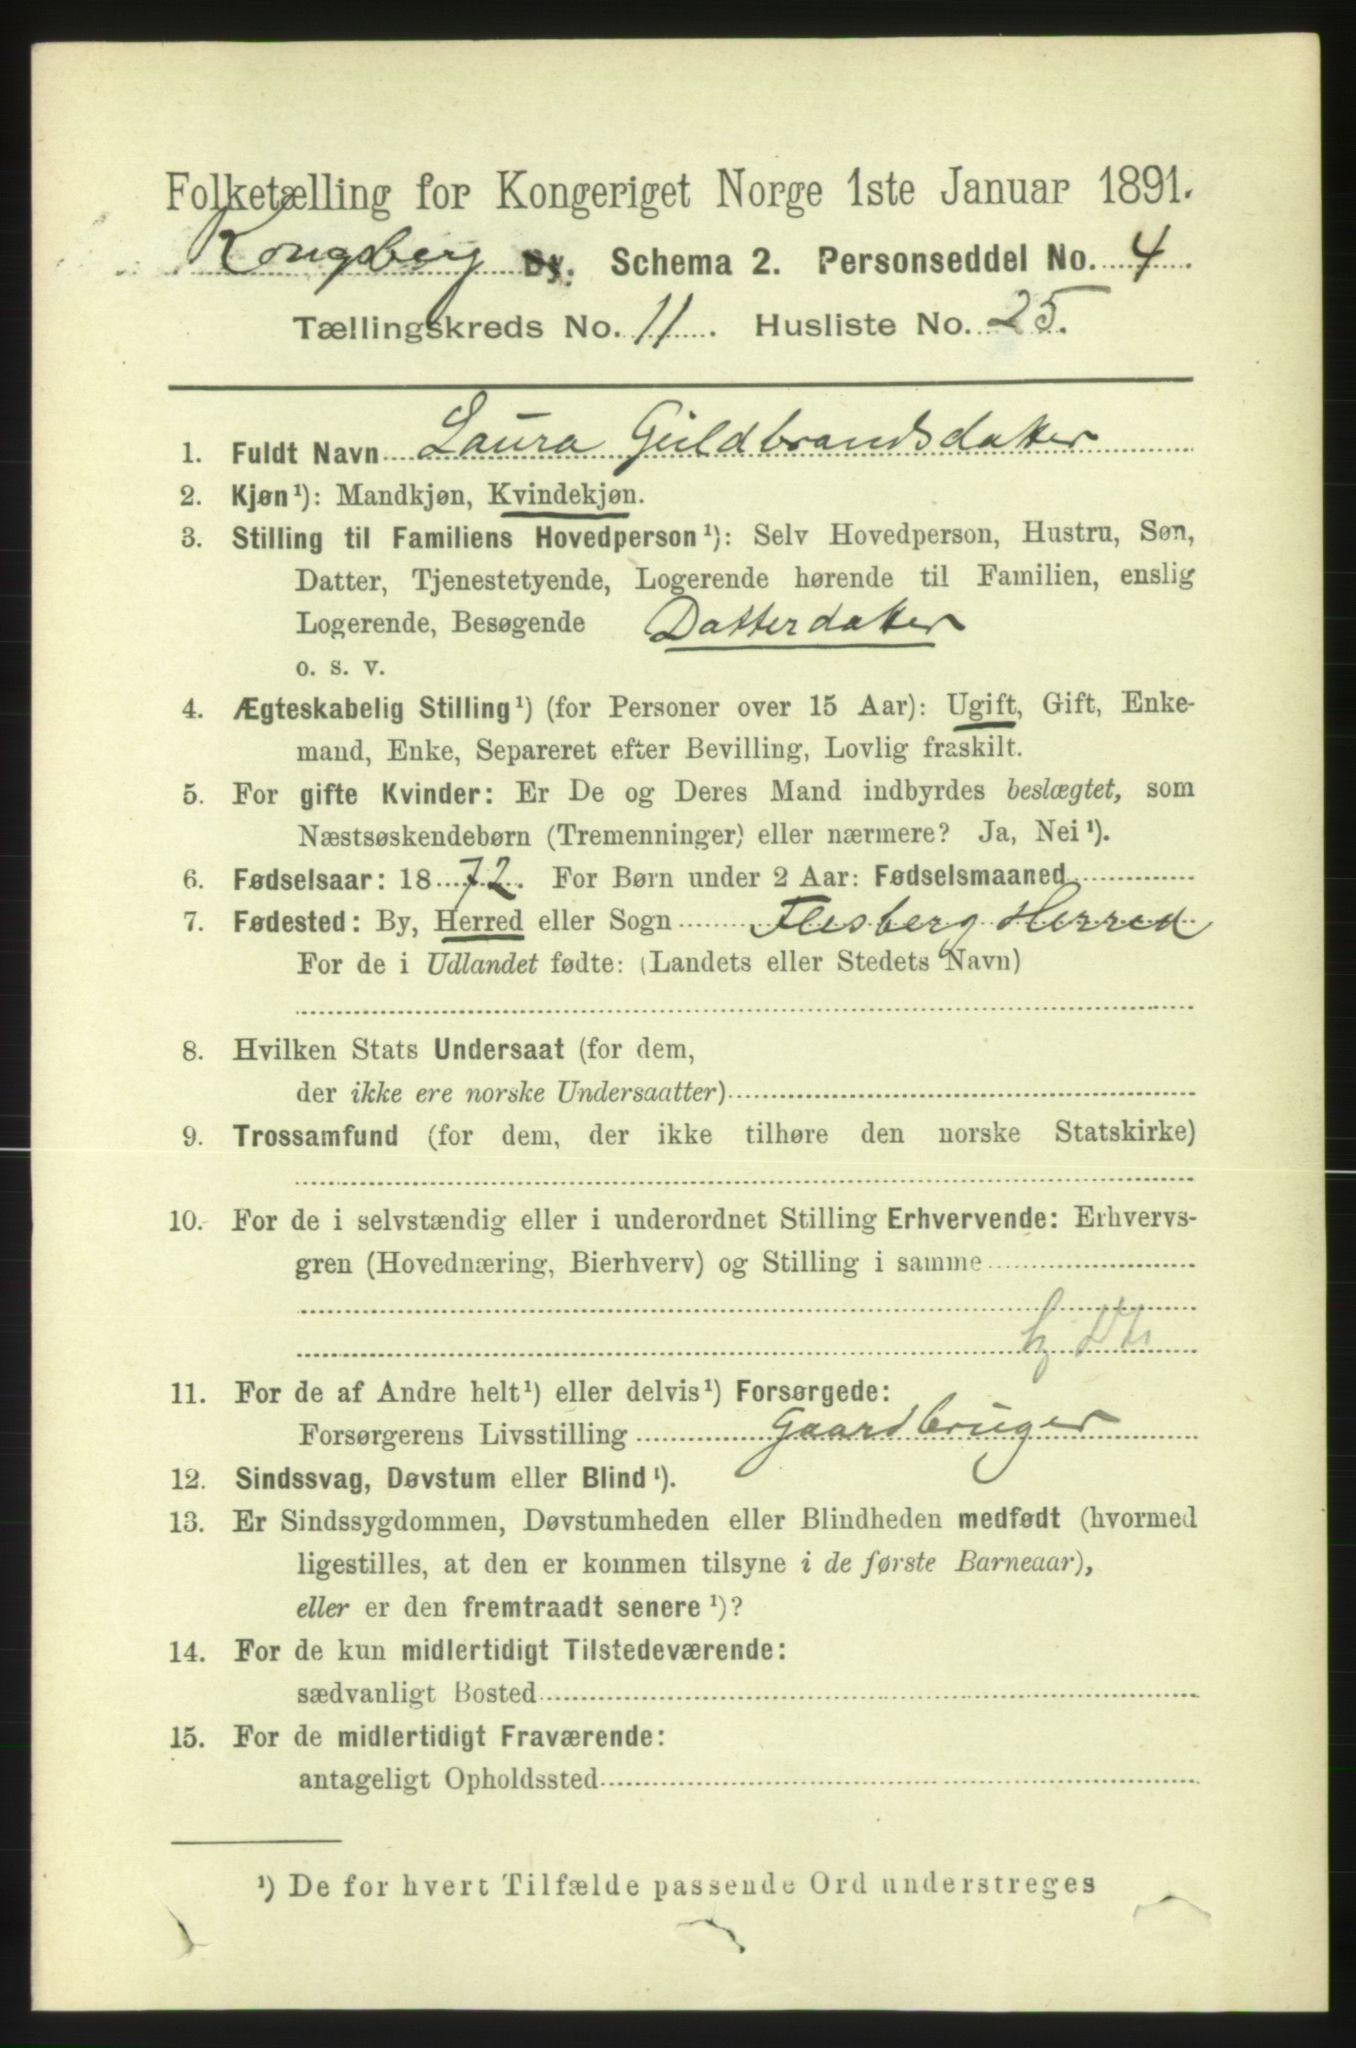 Folketælling for Kongeriget Norge 1ste Januar 1891.
Kongsberg By. Schema 2. Personseddel No. 4.
Tællingskreds No. 11. Husliste No. 25.
1. Fuldt Navn Laura Guldbrandsdatter
2. Kjøn¹): Mandkjøn, Kvindekjøn.
3. Stilling til Familiens Hovedperson¹): Selv Hovedperson, Hustru, Søn,
Datter, Tjenestetyende, Logerende hørende til Familien, enslig
Logerende, Besøgende Datterdatter
o. s. v.
4. Ægteskabelig Stilling¹) (for Personer over 15 Aar): Ugift, Gift, Enke-
mand, Enke, Separeret efter Bevilling, Lovlig fraskilt.
5. For gifte Kvinder: Er De og Deres Mand indbyrdes beslægtet, som
Næstsøskendebørn (Tremenninger) eller nærmere? Ja, Nei¹).
6. Fødselsaar: 1872. For Børn under 2 Aar: Fødselsmaaned
7. Fødested: By, Herred eller Sogn Flesberg Herred
For de i Udlandet fødte: (Landets eller Stedets Navn)
8. Hvilken Stats Undersaat (for dem,
der ikke ere norske Undersaatter)
9. Trossamfund (for dem, der ikke tilhøre den norske Statskirke)
10. For de i selvstændig eller i underordnet Stilling Erhvervende: Erhvervs-
gren (Hovednæring, Bierhverv) og Stilling i samme
11. For de af Andre helt¹) eller delvis¹) Forsørgede:
Forsørgerens Livsstilling Gaardbruger
12. Sindssvag, Døvstum eller Blind¹).
13. Er Sindssygdommen, Døvstumheden eller Blindheden medfødt (hvormed
ligestilles, at den er kommen tilsyne i de første Barneaar),
eller er den fremtraadt senere¹)?
14. For de kun midlertidigt Tilstedeværende:
sædvanligt Bosted
15. For de midlertidigt Fraværende:
antageligt Opholdssted
¹) De for hvert Tilfælde passende Ord understreges